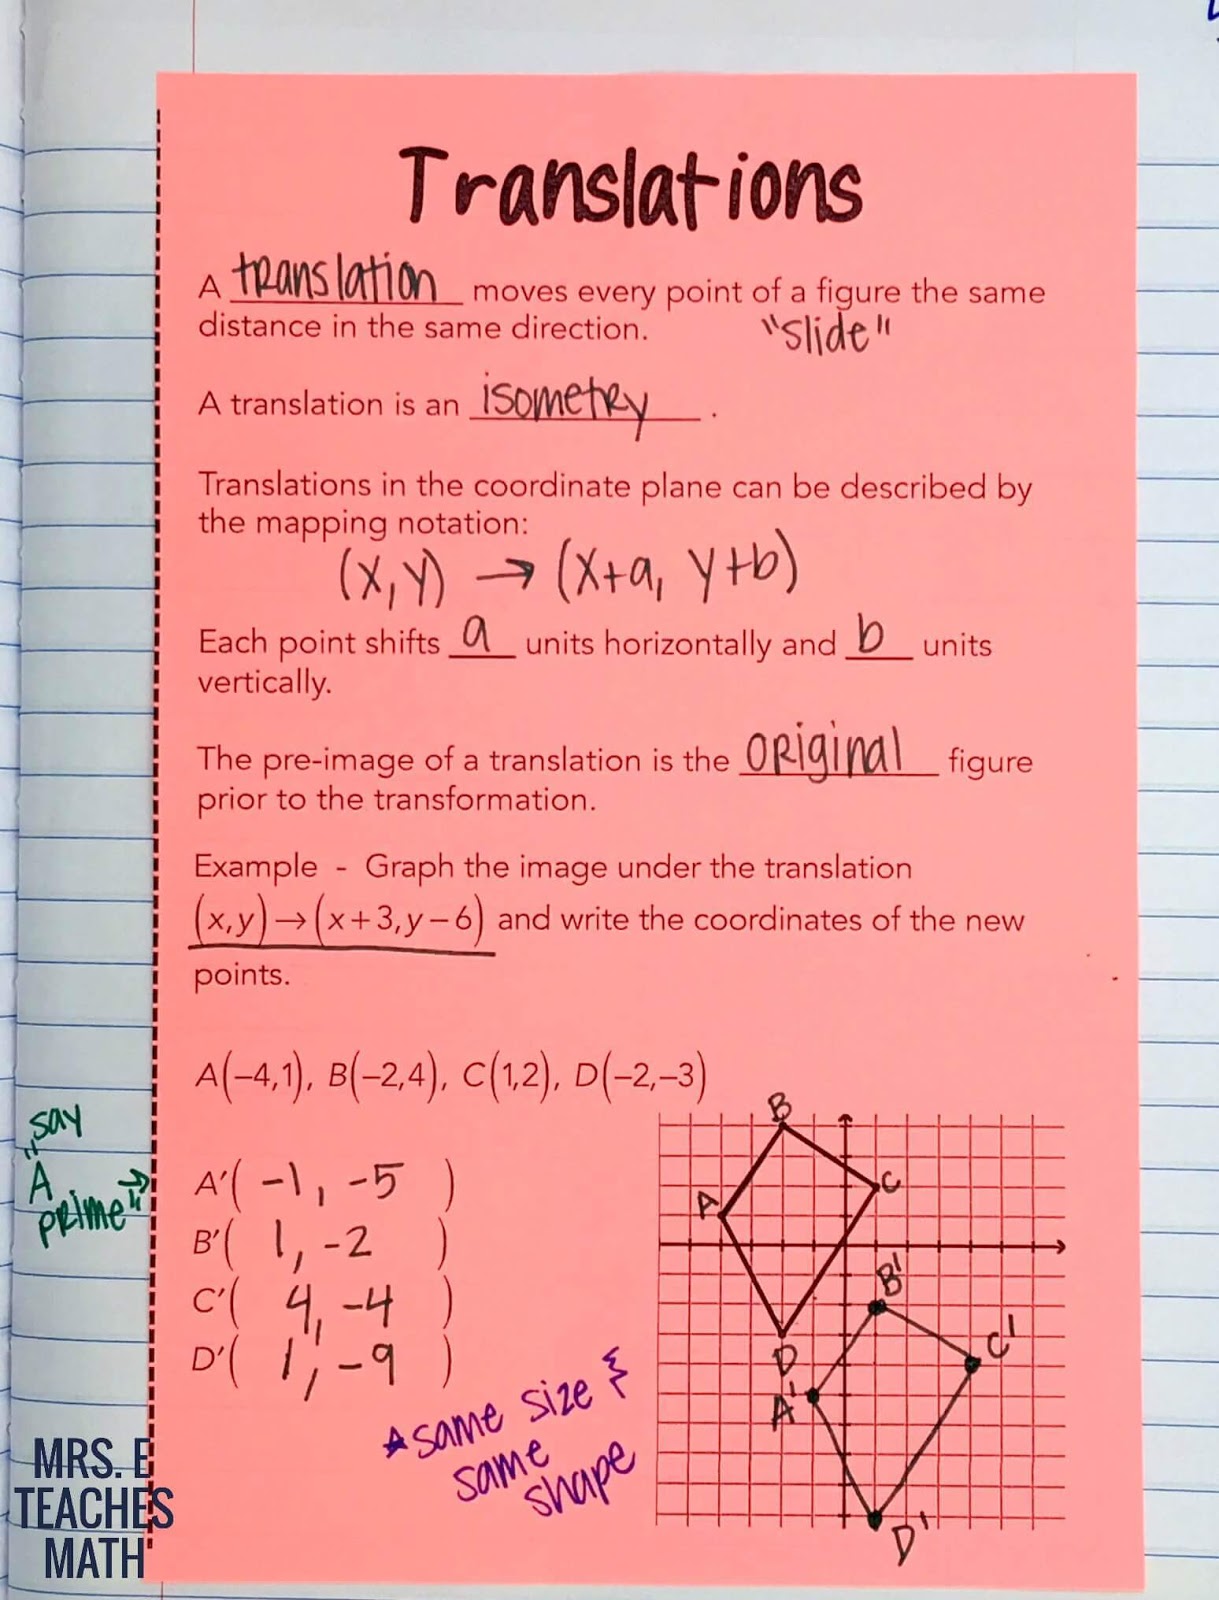 Translations
A translation moves every point of a figure the same
distance in the same direction. "slide"
A translation is an isometry.
Translations in the coordinate plane can be described by
the mapping notation:
(x,y) → (x+a, y+b)
Each point shifts a units horizontally and b units
vertically.
The pre-image of a translation is the original figure
prior to the transformation.
Example - Graph the image under the translation
(x,y)→(x+3,y−6) and write the coordinates of the new
points.
A(−4,1), B(−2,4), C(1,2), D(−2,−3)
say
"A
prime" →
A'( -1, -5 )
B'( 1, -2 )
C'( 4, -4 )
D'( 1, -9 )
★same size &
same
shape
B
C
A
B'
C'
D
A'
D'
MRS. E
TEACHES
MATH